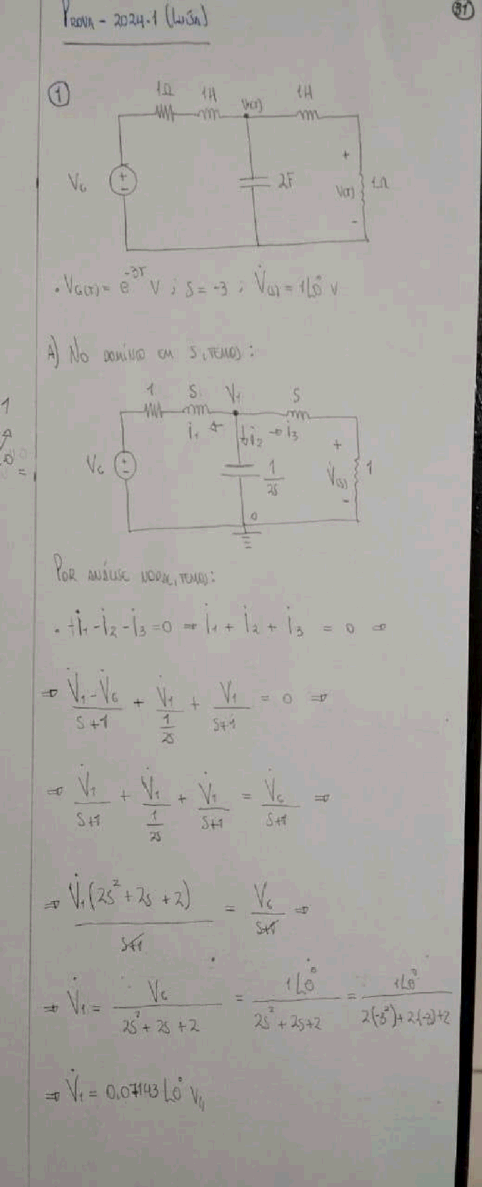 PROVA - 2024-1 (LUÍSA)
31
1
1Ω 1H V1(T) 1H
VG + - 2F + V(T) - 1Ω
• VG(T) = e^-3T V ; S = -3 ; V̇(s) = 1∠0° V
A) NO DOMÍNIO EM S, TEMOS:
1 S V1 S
i1 i2 i3
VG + - 1/2S + V̇(s) - 1
0
POR ANÁLISE NODAL, TEMOS:
• +i1 - i2 - i3 = 0 ⇒ i1 + i2 + i3 = 0 ⇒
⇒ (V̇1 - V̇G)/(S+1) + V̇1/(1/2S) + V1/(S+1) = 0 ⇒
⇒ V̇1/(S+1) + V̇1/(1/2S) + V̇1/(S+1) = V̇G/(S+1) ⇒
⇒ V̇1(2S² + 2S + 2)/(S+1) = VG/(S+1) ⇒
⇒ V̇1 = VG/(2S² + 2S + 2) = 1∠0°/(2S² + 2S + 2) = 1∠0°/(2(-3²) + 2·(-3) + 2)
⇒ V̇1 = 0,07143 ∠0° V//